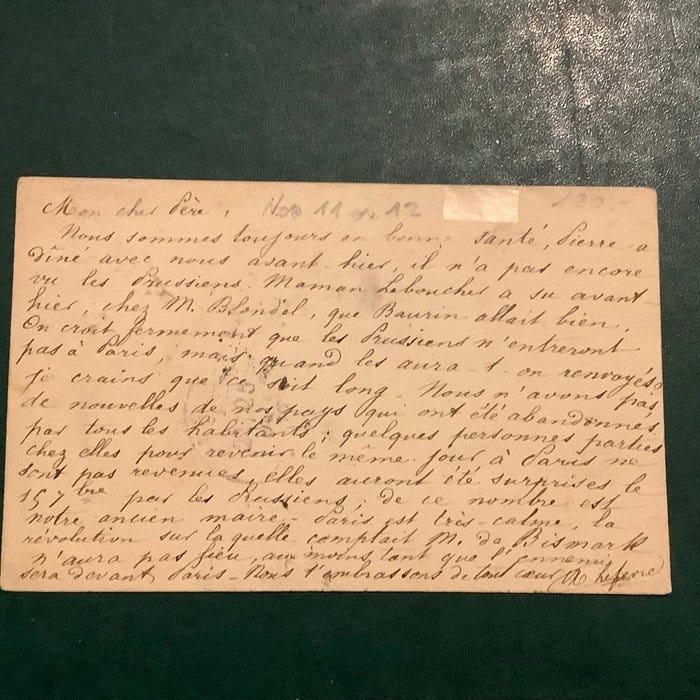 Mon cher Père, Nos 11 ou 12
Nous sommes toujours en bonne santé, Pierre a
dîné avec nous avant-hier, il n'a pas encore
vu les Prussiens. Maman Leboucher a su avant
hier, chez M. Blondel, que Baurin allait bien.
On croit fermement que les Prussiens n'entreront
pas à Paris, mais quand les aura-t-on renvoyés,
je crains que ce soit long. Nous n'avons pas
de nouvelles de nos pays qui ont été abandonnés
par tous les habitants; quelques personnes parties
chez elles pour revenir le même jour à Paris ne
sont pas revenues, elles auront été surprises le
15 7bre par les Prussiens, de ce nombre est
notre ancien maire - Paris est très-calme, la
révolution sur laquelle comptait M. de Bismark
n'aura pas lieu, au moins tant que l'ennemi
sera devant Paris - Nous t'embrassons de tout cœur